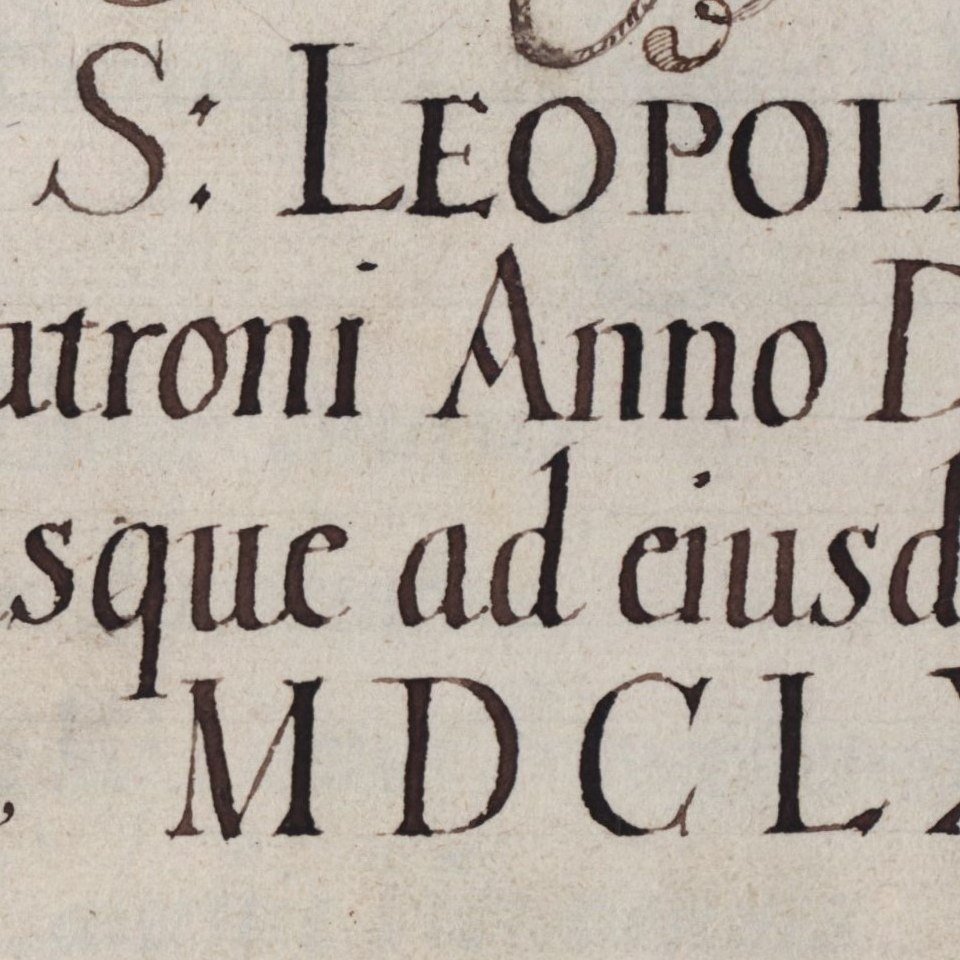 S: LEOPOLI
atroni Anno D
sque ad eiusd
, MDCLX